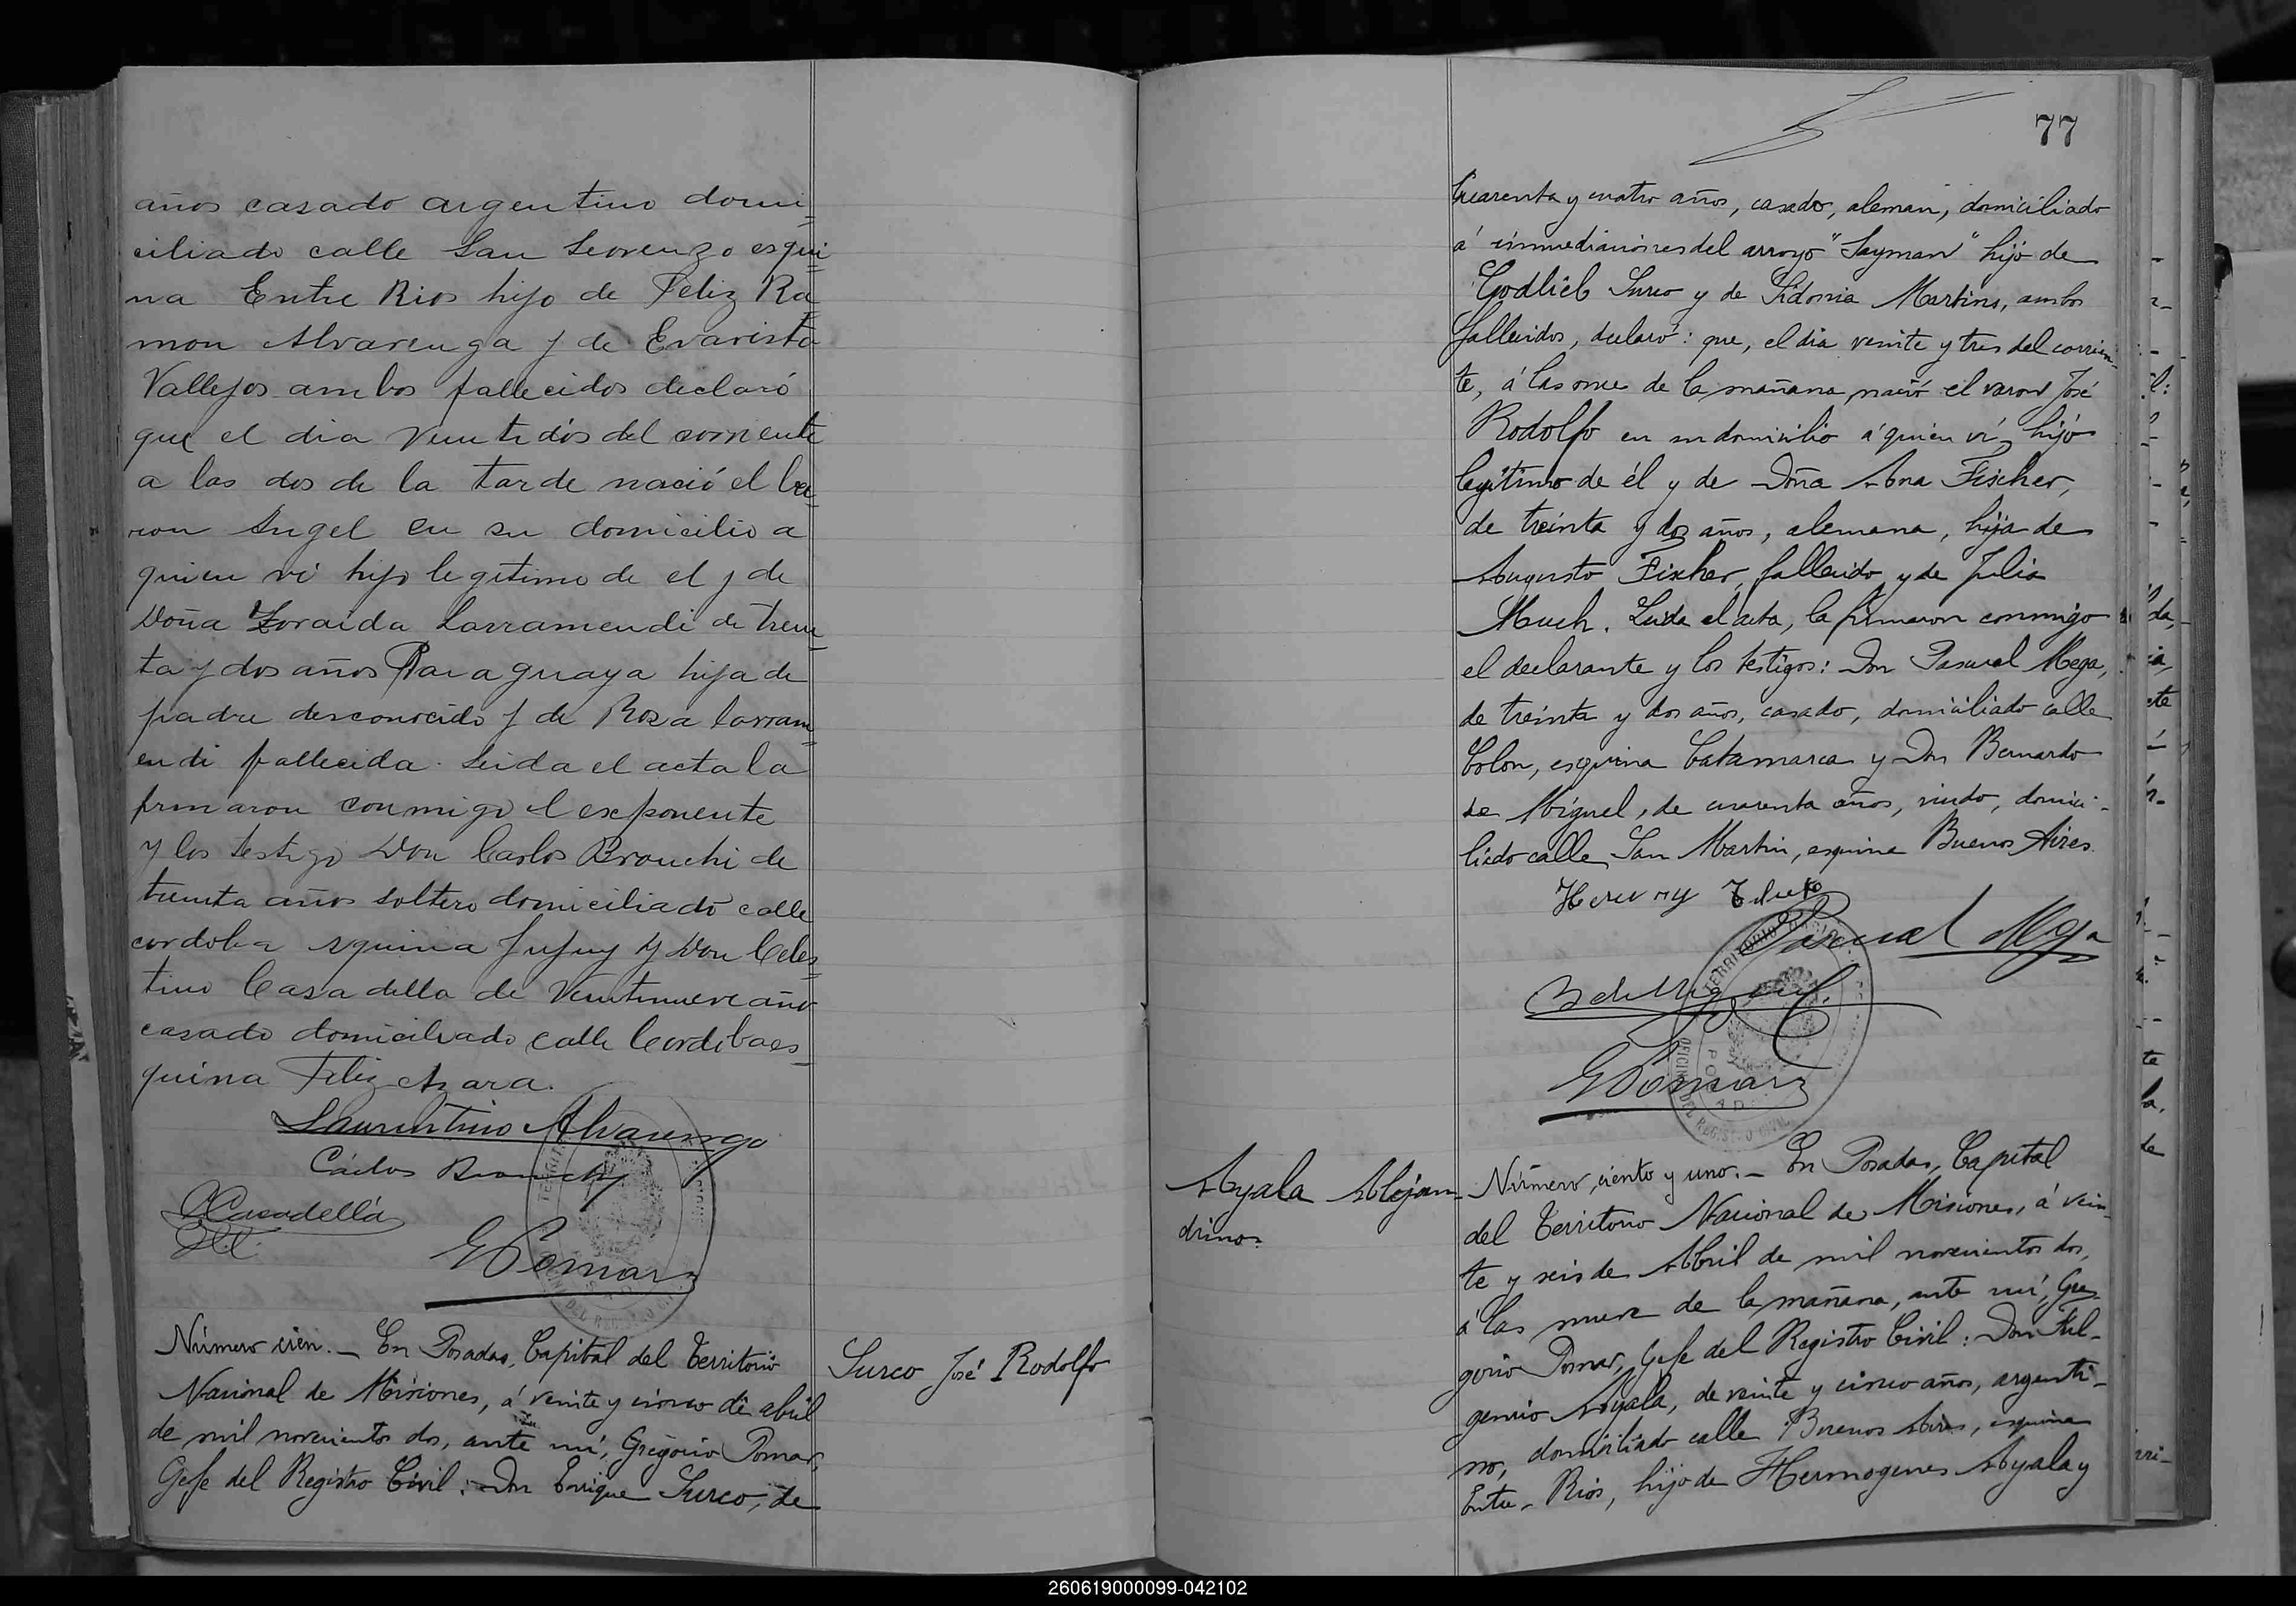 años casado argentino domi=
ciliado calle San Leorenzo esqui=
na Entre Rios hijo de Feliz Ra=
mon Alvarenga y de Evarista
Vallejos ambos fallecidos declaró
que el dia veintidós del corriente
a las dos de la tarde nació el ba=
ron Angel en su domicilio a
quien ví hijo legitimo de el y de
Doña Zoraida Larramendi de trein=
ta y dos años Paraguaya hija de
padre desconocido y de Rosa Larram=
endi fallecida. Leida el acta la
firmaron conmigo el exponente
y los testigo Don Carlos Brouchi de
treinta años soltero domiciliado calle
cordoba esquina Jujuy y Don Celes=
tino Casadella de Veintinueve años
casado domiciliado calle Cordobaes=
quina Feliz Azara.
Laurentino Alvarenga
Cárlos
CCasadellá
GPomar
Número cien. — En Posadas, Capital del Territorio
Nacional de Misiones, á veinte y cinco de abril
de mil novecientos dos, ante mí, Gregorio Pomar,
Gefe del Registro Civil: Don Enrique Surco, de
Surco José Rodolfo
77
Cuarenta y cuatro años, casado, aleman, domiciliado
á inmediaciones del arroyo "Sayman" hijo de
Godlieb Surco y de Sidonia Martins, ambos
fallecidos, declaró: que, el dia veinte y tres del corrien-
te, á las once de la mañana, nació el varon José
Rodolfo en su domicilio á quien ví, hijo
legítimo de él y de Doña Ana Fischer,
de treinta y dos años, alemana, hija de
Augusto Fischer, fallecido, y de Julia
Much. Leida el acta, la firmaron conmigo
el declarante y los testigos: Don Pascual Mega,
de treinta y dos años, casado, domiciliado calle
Colon, esquina Catamarca y Don Bernardo
de Miguel, de cuarenta años, viudo, domici-
liado calle San Martin, esquina Buenos Aires.
Pascual Mega
B de Miguel.
GPomar
Ayala Alejan-
drino.
Número ciento y uno. — En Posadas, Capital
del Territorio Nacional de Misiones, á vein-
te y seis de Abril de mil novecientos dos,
á las nueve de la mañana, ante mí, Gre-
gorio Pomar, Gefe del Registro Civil: Don Ful-
gencio Ayala, de veinte y cinco años, argenti-
no, domiciliado calle Buenos Aires, esquina
Entre-Rios, hijo de Hermogenes Ayala y
260619000099-042102